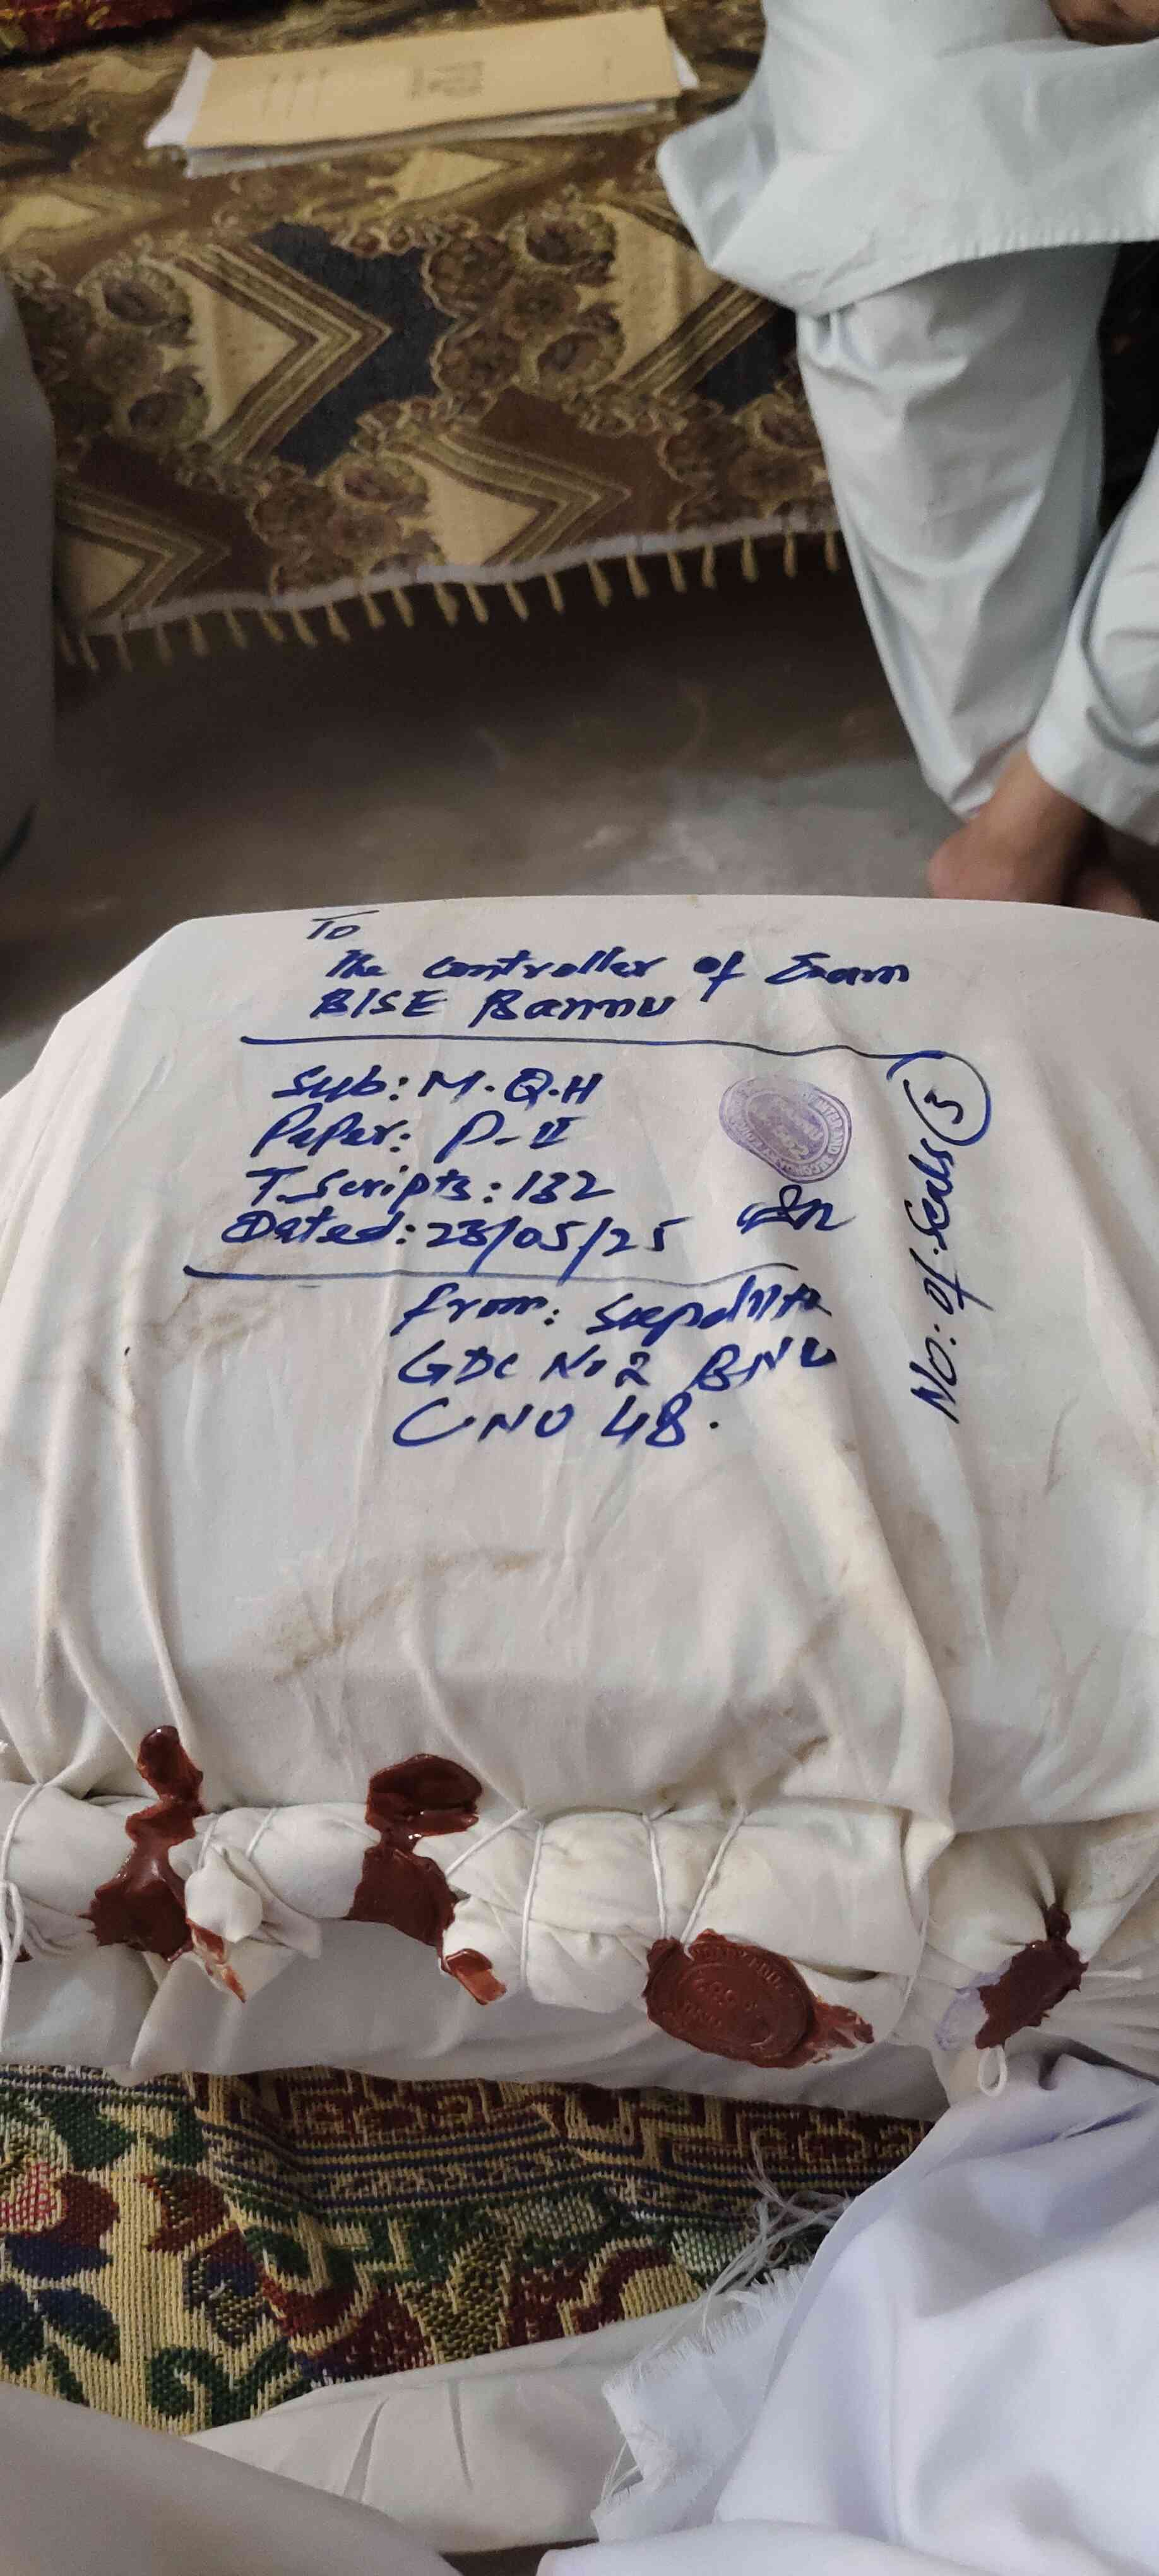 To
The Controller of Exam
BISE Bannu
Sub: M.Q.H
Paper: P-II
T.Scripts: 132
Dated: 23/05/25
from: Supdntt
GDC No 2 BNU
CNO 48.
No: of Seals 5